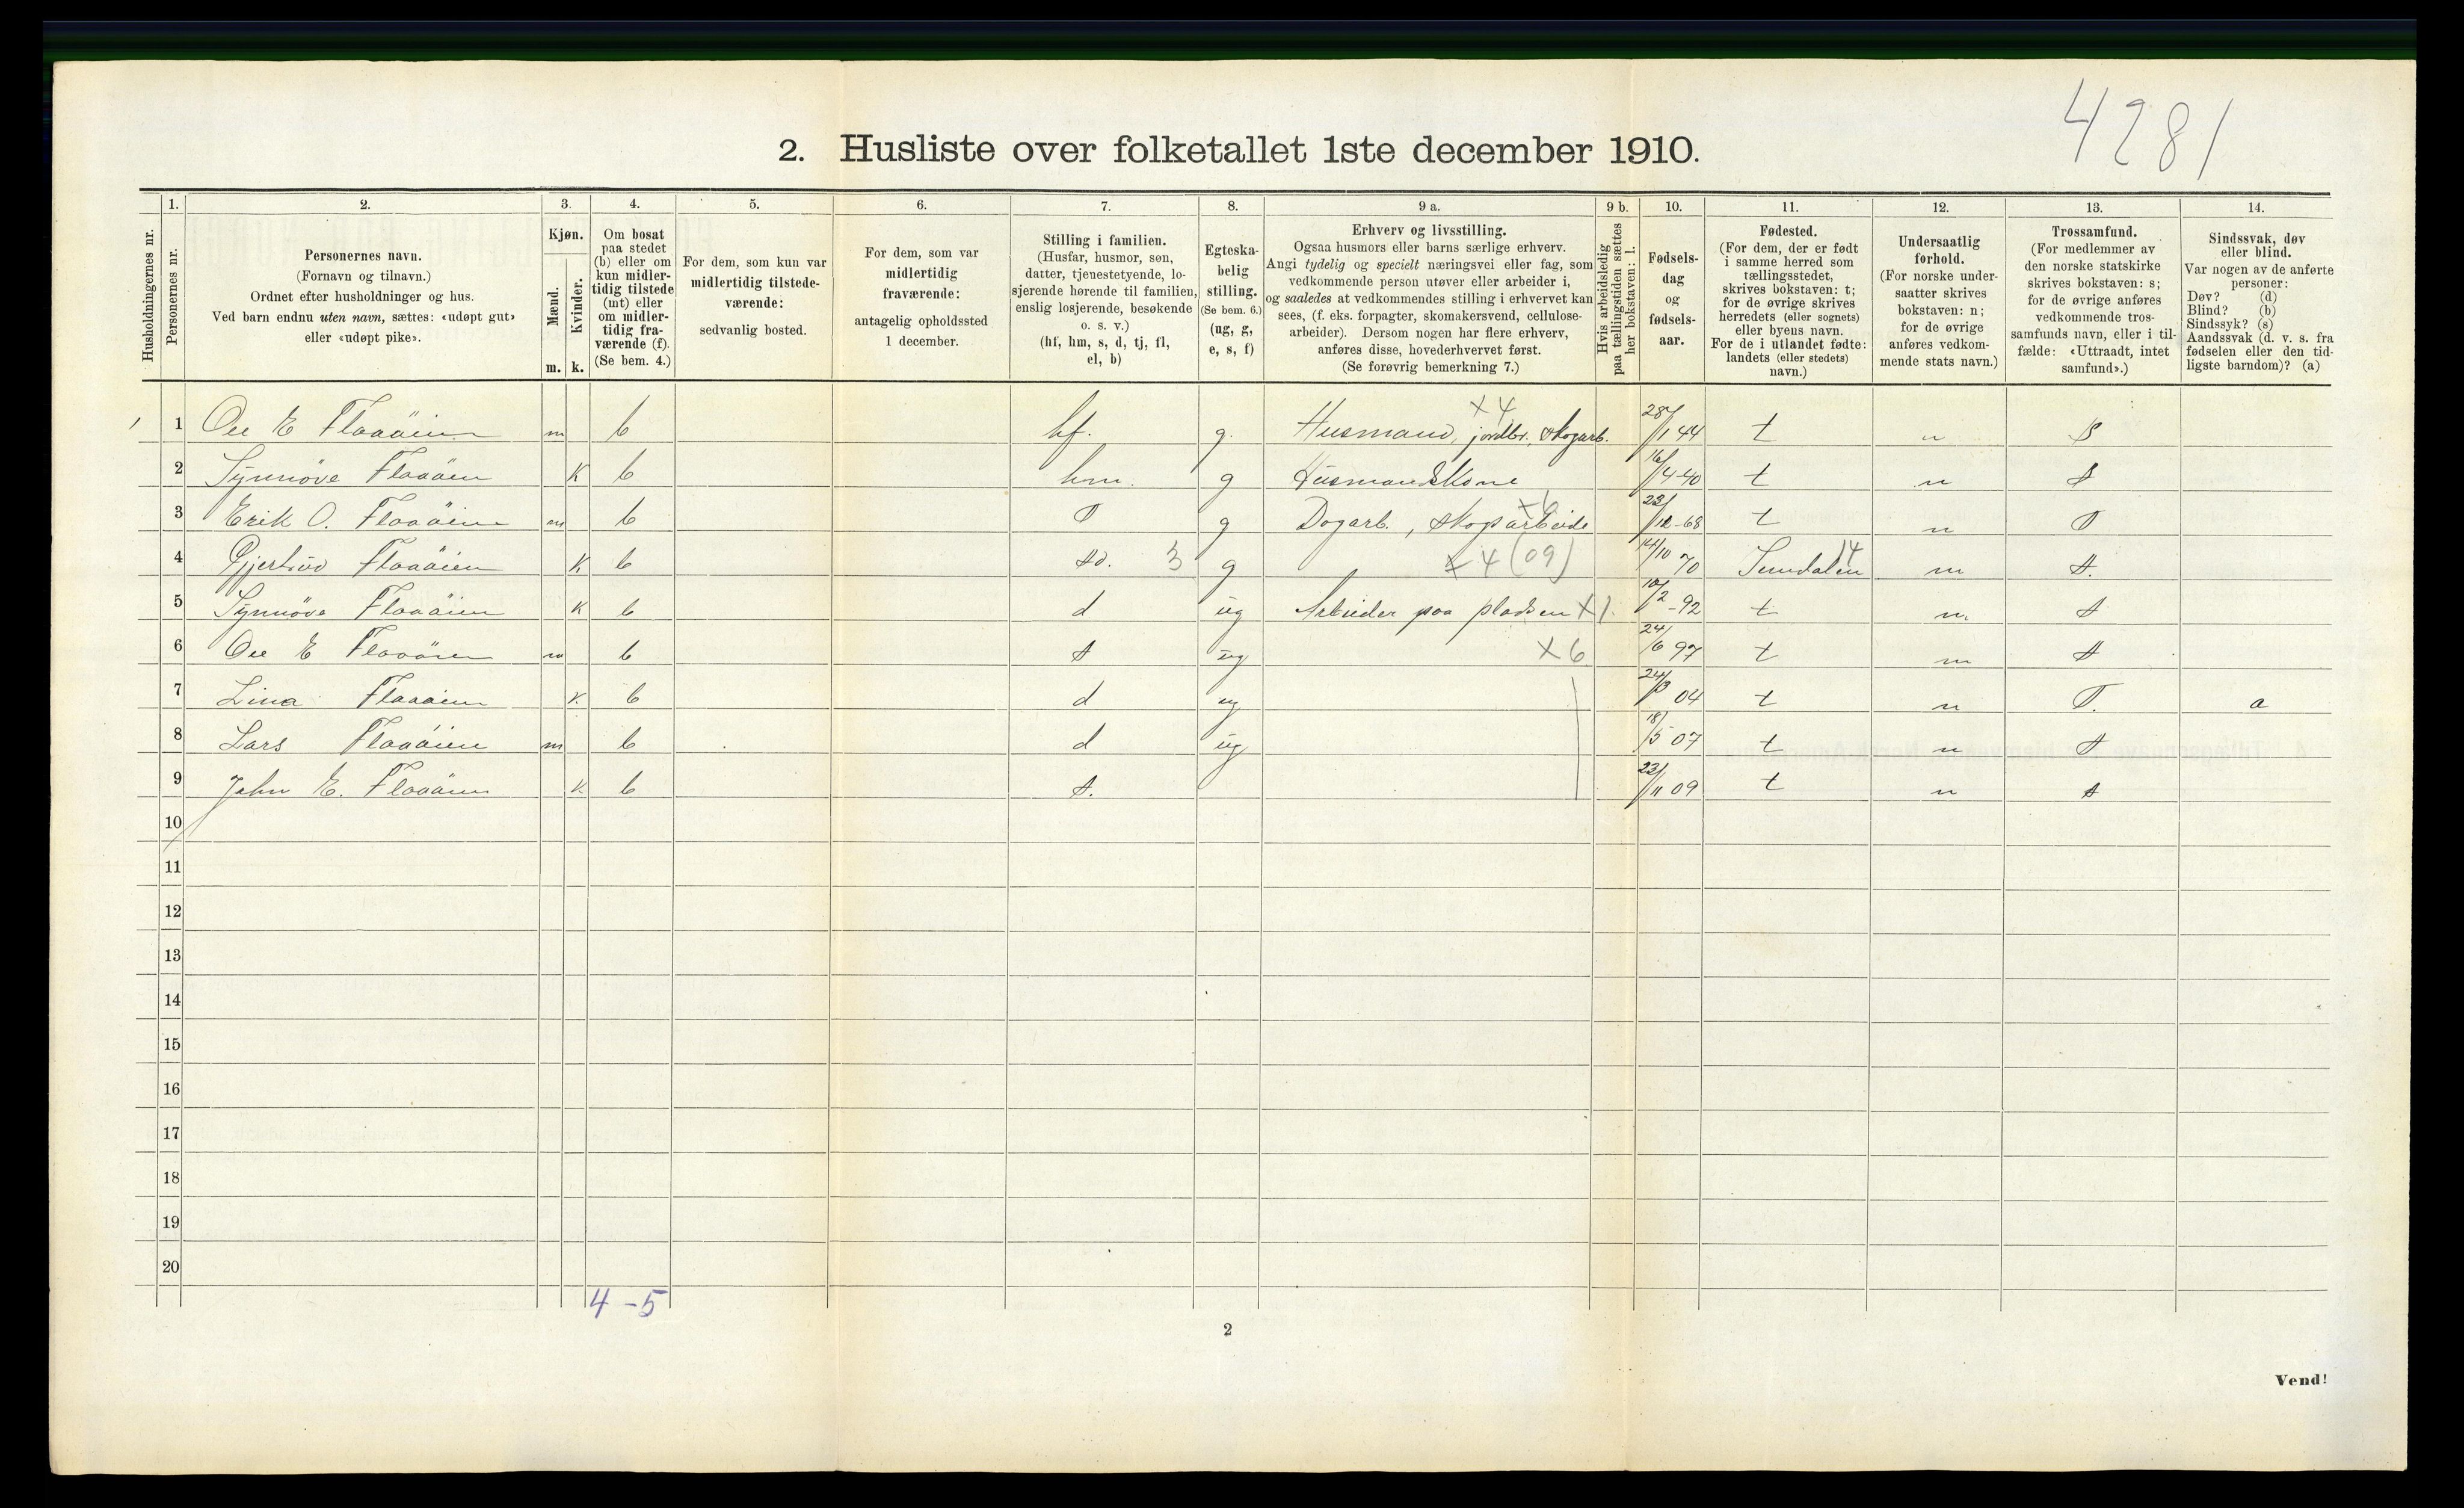 4281
2. Husliste over folketallet 1ste december 1910.
Husholdningernes nr.
1. Personernes nr.
2. Personernes navn. (Fornavn og tilnavn.) Ordnet efter husholdninger og hus. Ved barn endnu uten navn, sættes: «udøpt gut» eller «udøpt pike».
3. Kjøn. Mænd. m. Kvinder. k.
4. Om bosat paa stedet (b) eller om kun midlertidig tilstede (mt) eller om midlertidig fraværende (f). (Se bem. 4.)
5. For dem, som kun var midlertidig tilstedeværende: sedvanlig bosted.
6. For dem, som var midlertidig fraværende: antagelig opholdssted 1 december.
7. Stilling i familien. (Husfar, husmor, søn, datter, tjenestetyende, losjerende hørende til familien, enslig losjerende, besøkende o. s. v.) (hf, hm, s, d, tj, fl, el, b)
8. Egteskabelig stilling. (Se bem. 6.) (ug, g, e, s, f)
9 a. Erhverv og livsstilling. Ogsaa husmors eller barns særlige erhverv. Angi tydelig og specielt næringsvei eller fag, som vedkommende person utøver eller arbeider i, og saaledes at vedkommendes stilling i erhvervet kan sees, (f. eks. forpagter, skomakersvend, cellulosearbeider). Dersom nogen har flere erhverv, anføres disse, hovederhvervet først. (Se forøvrig bemerkning 7.)
9 b. Hvis arbeidsledig paa tællingstiden sættes her bokstaven: l.
10. Fødselsdag og fødselsaar.
11. Fødested. (For dem, der er født i samme herred som tællingsstedet, skrives bokstaven: t; for de øvrige skrives herredets (eller sognets) eller byens navn. For de i utlandet fødte: landets (eller stedets) navn.)
12. Undersaatlig forhold. (For norske undersaatter skrives bokstaven: n; for de øvrige anføres vedkommende stats navn.)
13. Trossamfund. (For medlemmer av den norske statskirke skrives bokstaven: s; for de øvrige anføres vedkommende trossamfunds navn, eller i tilfælde: «Uttraadt, intet samfund».)
14. Sindssvak, døv eller blind. Var nogen av de anførte personer: Døv? (d) Blind? (b) Sindssyk? (s) Aandssvak (d. v. s. fra fødselen eller den tidligste barndom)? (a)
1 1 Ole E Flaaöien m b hf. g. Husmand, jordbr., skogarb. X 4 28/1 44 t n S
2 Synnöve Flaaöien K b hm. g Husmandskone 16/4-40 t n s
3 Erik O. Flaaöien m b S g Dagarb., skogsarbeide X6 23/12-68 t n S
4 Gjertrud Flaaöien K b sd. 3 g X 4 (09) 14/10 70 Sundalen 14 n s.
5 Synnöve Flaaöien K b d ug Arbeider paa pladsen X 1. 10/2-92 t n. s
6 Ole E Flaaöien m b s ug X 6 24/6 97 t n s
7 Lina Flaaöien K. b d ug 24/3 04 t n S. a
8 Lars Flaaöien m b d ug 18/5 07 t n s
9 John E. Flaaöien K. b s. 23/11 09 t n s
10
11
12
13
14
15
16
17
18
19
20
4-5
2
Vend!